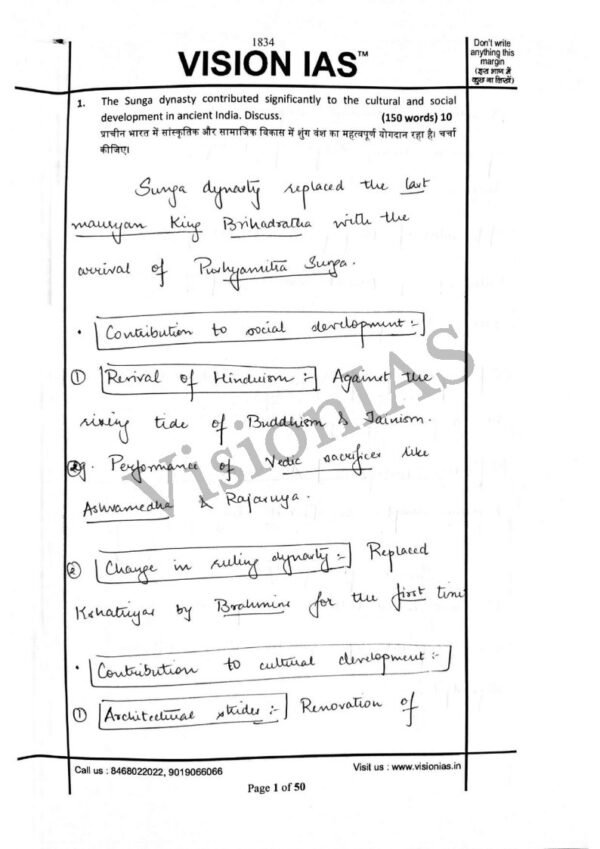 1834
VISION IAS™
Don't write
anything this
margin
(इस भाग में
कुछ ना लिखें)
1. The Sunga dynasty contributed significantly to the cultural and social
development in ancient India. Discuss. (150 words) 10
प्राचीन भारत में सांस्कृतिक और सामाजिक विकास में शुंग वंश का महत्वपूर्ण योगदान रहा है। चर्चा
कीजिए।
Sunga dynasty replaced the last
mauryan King Brihadratha with the
arrival of Pushyamitra Sunga.
• Contribution to social development :-
① Revival of Hinduism :- Against the
rising tide of Buddhism & Jainism.
eg. Performance of Vedic sacrifices like
Ashvamedha & Rajasuya.
② Change in ruling dynasty :- Replaced
Kshatriyas by Brahmins for the first time
• Contribution to cultural development :-
① Architectural strides :- Renovation of
VisionIAS
Call us : 8468022022, 9019066066
Visit us : www.visionias.in
Page 1 of 50